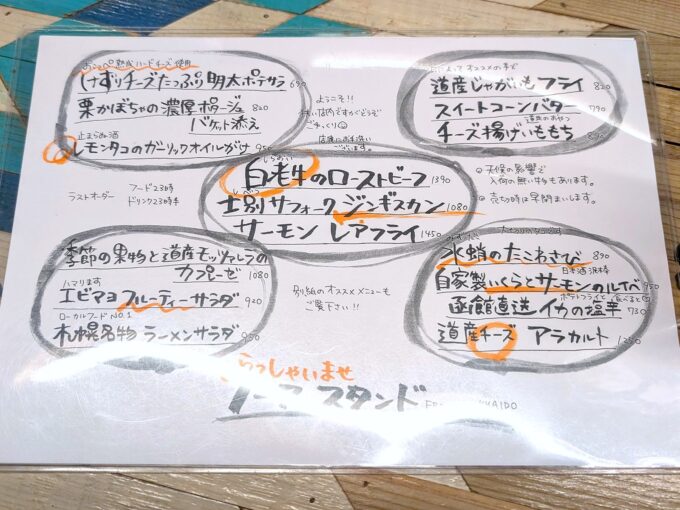 熟成ハードチーズ使用
けずりチーズたっぷり明太ポテサラ 690
栗かぼちゃの濃厚ポタージュ 820
バケット添え
止まらぬ酒
レモンタコのガーリックオイルがけ 950
ようこそ!!
ごゆっくり
ございます。
オススメの手で
道産じゃがいもフライ 820
スイートコーンバター 790
道民のおやつ
チーズ揚げいももち 890
ラストオーダー
フード23時
ドリンク23時半
しらおい
白老牛のローストビーフ 1390
しべつ
士別サフォークジンギスカン 1080
サーモン レアフライ 1450
◎天候の影響で
入荷の無い物もあります。
◎売切時は早閉まいします。
季節の果物と道産モッツァレラの
カプレーゼ 1080
ハマります
エビマヨフルーティーサラダ 920
ローカルフードNO.1
札幌名物 ラーメンサラダ 950
別紙のオススメメニューも
ご覧下さい!!
水蛸のたこわさび 890
日本酒
自家製いくらとサーモンのルイベ 950
ポテトフライと食べると
函館直送 イカの塩辛 730
道産チーズ アラカルト 1250
らっしゃいませ
スタンド